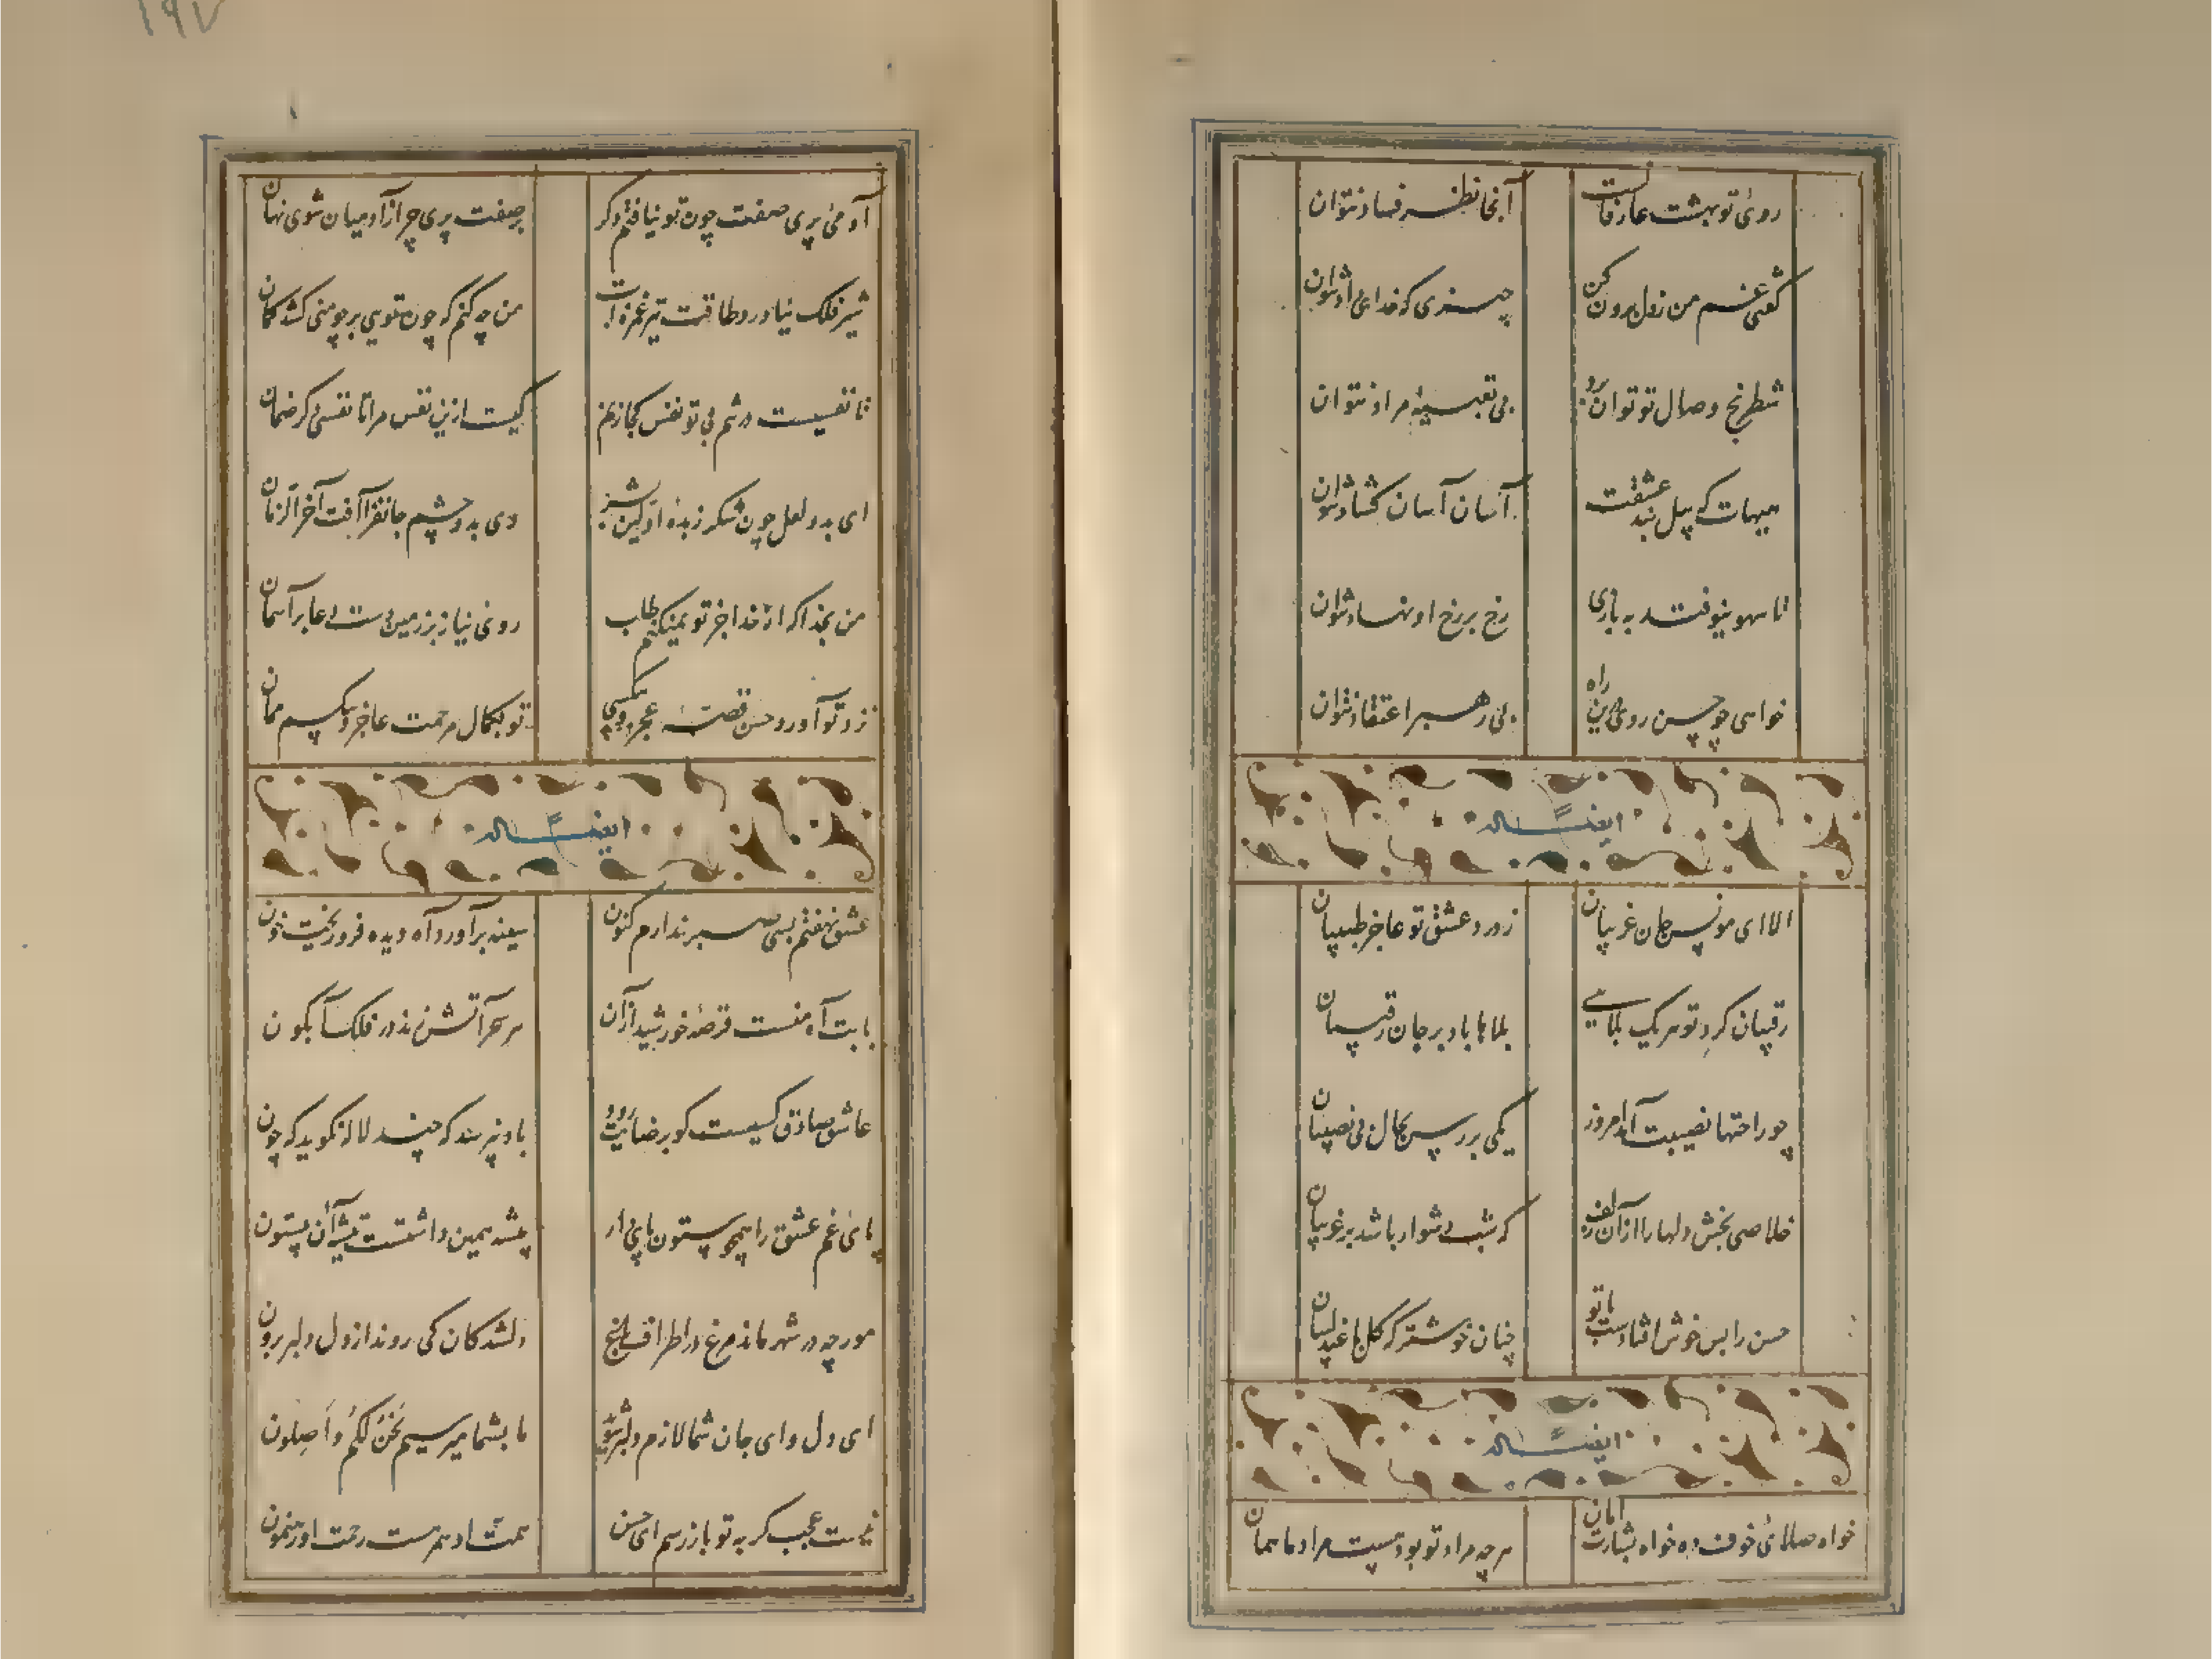 روئ تو بهشت عارفانست آنجا نظر فساد نتوان
گفتی غم من ز دل برون کن چیزی که خدای داد نتوان
شطرنج وصال تو توان برد بی تعبیهٔ مراد نتوان
هیهات که پیل بند عشقت آسان آسان گشاد نتوان
تا سهو نیوفتد به بازی رخ بر رخ او نهاد نتوان
خواهی چو حسن روی برین راه بی رهبر اعتقاد نتوان
ایضاً له
الا ای مونس جان غریبان ز درد عشق تو عاجز طبیبان
رقیبان کرد تو هریک بلایی بلاها باد بر جان رقیبان
چو راحتها نصیبت آمد امروز یکی بررس بحال بی نصیبان
خلاصی بخش دلها را از آن زلف که شب دشوار باشد بر غریبان
حسن را بس خوش افتادست با تو چنان خوشتر که گل با عندلیبان
ایضاً له
خواه صلای خوف ده خواه بشارت امان هرچه مراد تو بود هست مراد ما همان
۱۹۷
آدمئ پری صفت چون تو نیافتم دکر بر صفت پری چرا از آدمیان شوی نهان
شیر فلک نیاورد طاقت تیر غمزه ات من چه کنم که چون تویی بر چو منی کشد کمان
تا نفسیست درتنم بی تو نفس کجا زنم کیست ازین نفس مرا تا نفسی دکر ضمان
ای بدو لعل چون شکر زبدهٔ اولین بشر وی بدو چشم جانفزا آفت آخر الزمان
من بخدا که از خدا جز تو نمیکنم طلب روی نیاز بر زمین دست دعا بر آسمان
نزد تو آورد حسن قصهٔ عجز و بیکسی تو بکمال مرحمت عاجز و بیکسم ممان
ایضاً له
عشق نهفتم بسی صبر ندارم کنون سینه برآورد آه دیده فرو ریخت خون
بابت آه منست قرصهٔ خورشید از آن هر سحر آتش زند در فلک آبگون
عاشق صادق کسیست کو برضایت رود باد نپرسد که چند لاله نگوید که چون
پای غم عشق را همچو ستون پای دار پیشه همین داشتست تیشهٔ آن بیستون
مورچه در شهر ماند مرغ در اطراف باغ دلشدگان کی روند از دل دلبر برون
ای دل و ای جان شما لازم دلبر شوید ما بشما میرسیم نَحْنُ لَکُم واَصِلون
نیست عجب گر به تو باز رسم ای حسن همت او همرهست رحمت او رهنمون